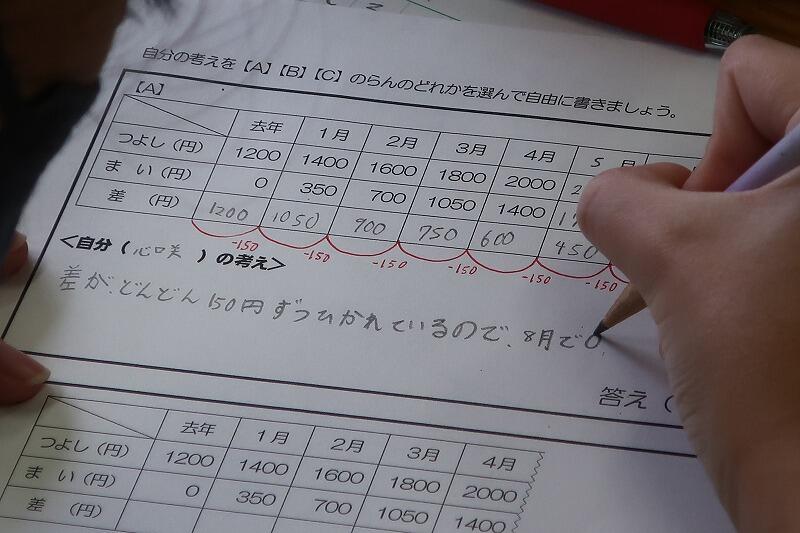 自分の考えを【A】【B】【C】のらんのどれかを選んで自由に書きましょう。
【A】
去年 1月 2月 3月 4月 5月
つよし(円) 1200 1400 1600 1800 2000 2
まい(円) 0 350 700 1050 1400 17
差(円) 1200 1050 900 750 600 450
-150 -150 -150 -150 -150 -150
<自分(心咲)の考え>
差が、どんどん150円ずつひかれているので、8月で0、
答え(
去年 1月 2月 3月 4月
つよし(円) 1200 1400 1600 1800 2000
まい(円) 0 350 700 1050 1400
差(円)